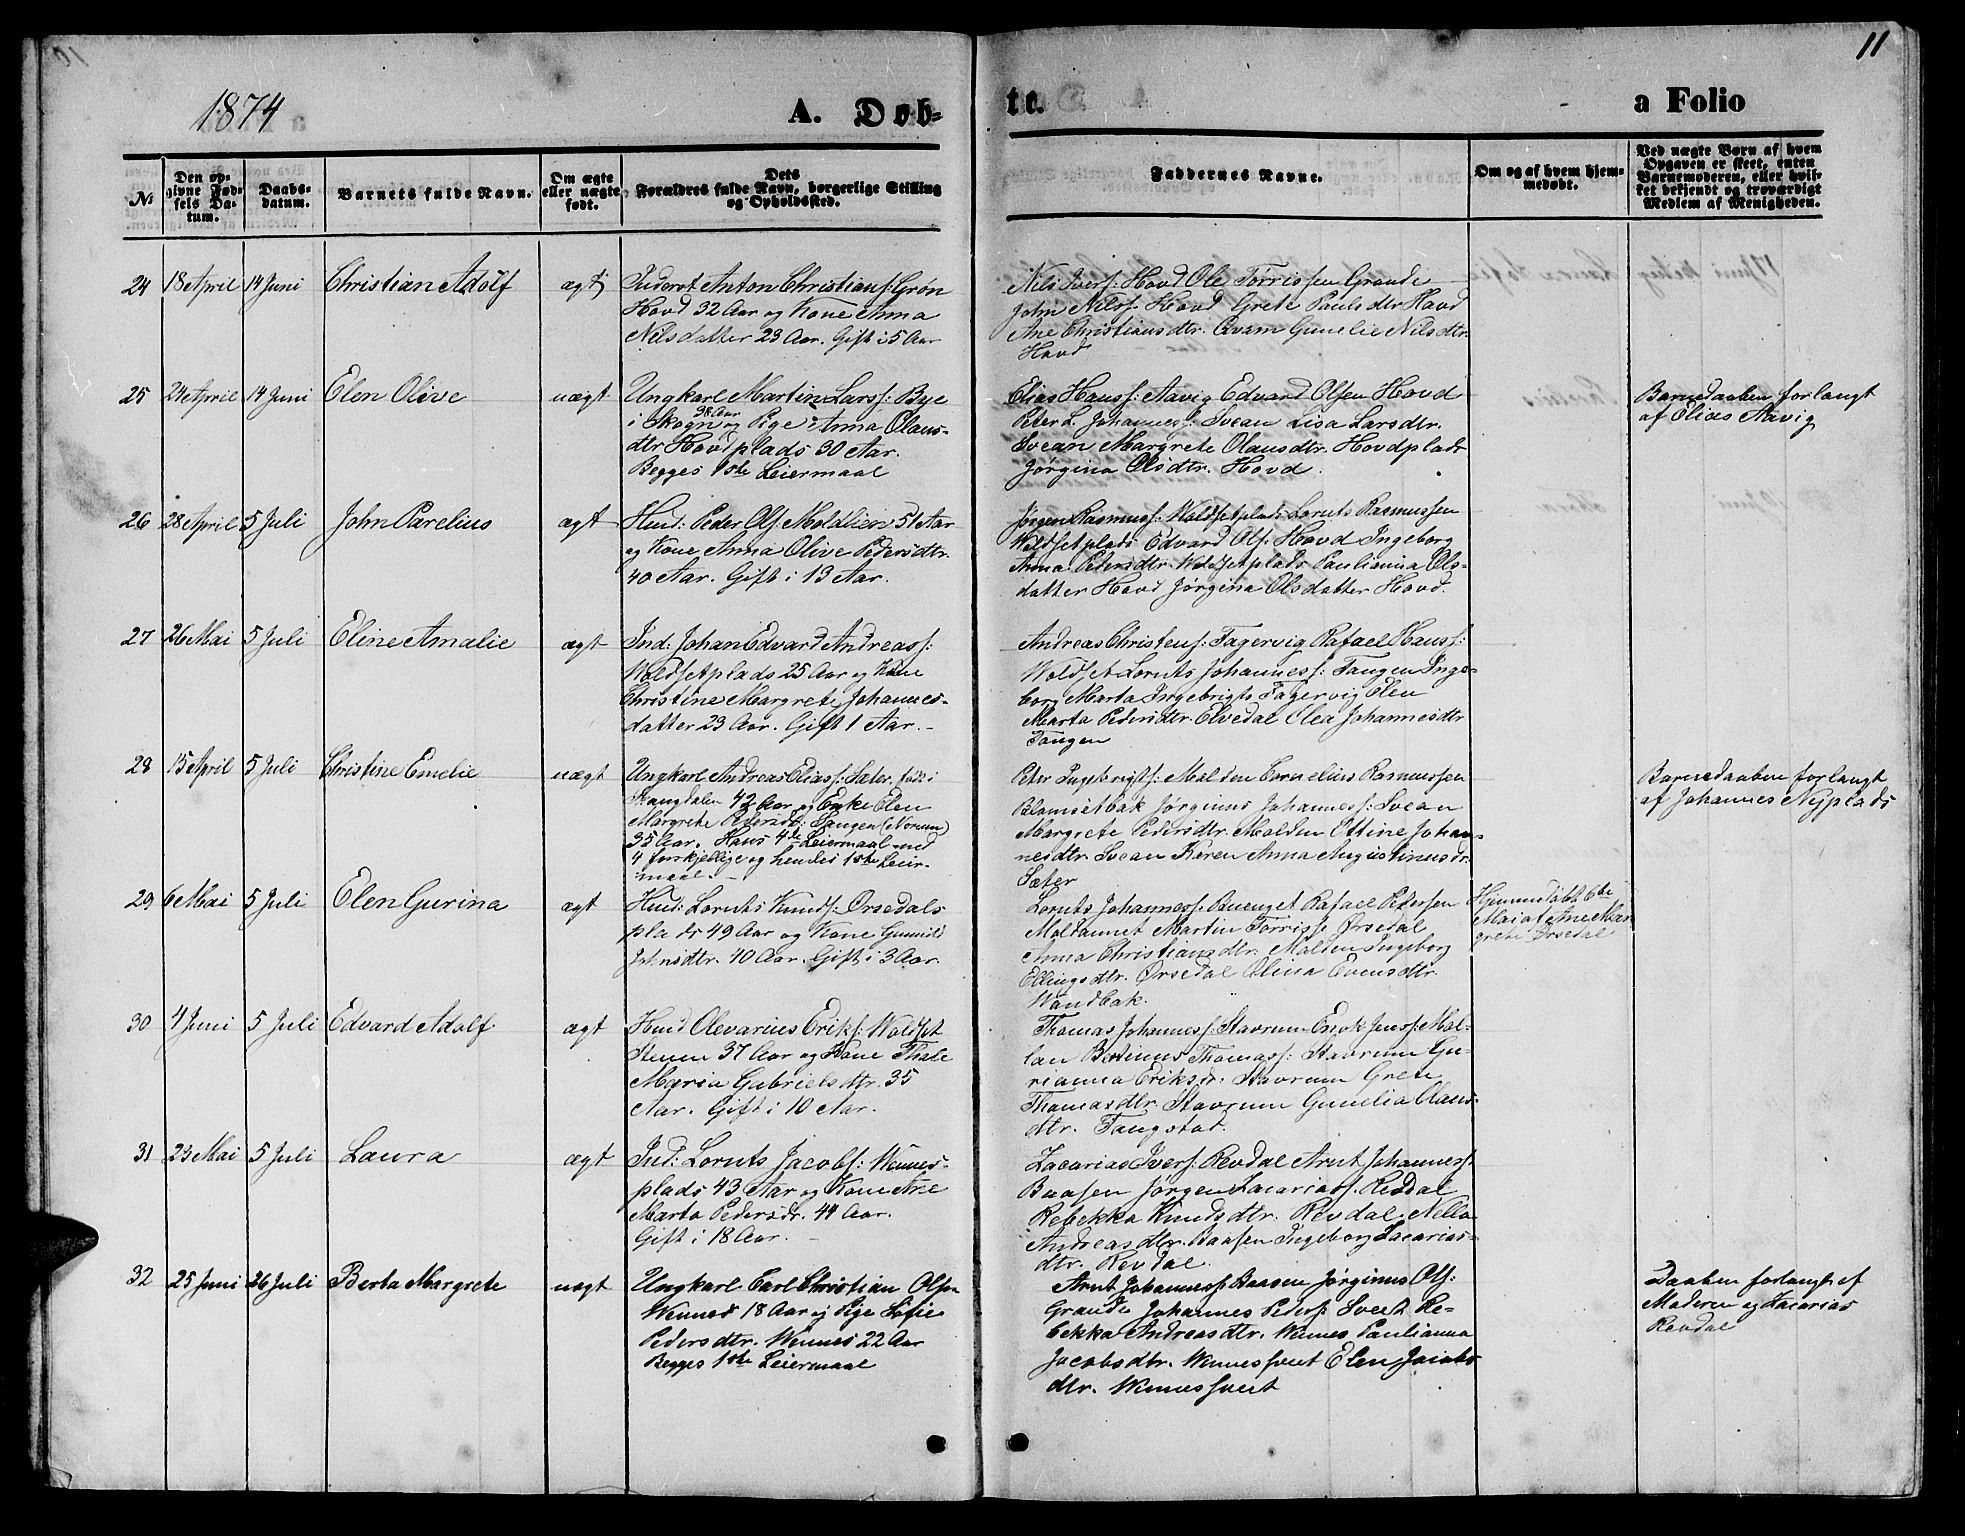 11
1874 A. Døb-
te. a Folio
№
Den op-
givne Fød-
sels Da-
tum.
Daabs-
datum.
Barnets fulde Navn.
Om ægte
eller uægte
født.
Dets
Forældres fulde Navn, borgerlige Stilling
og Opholdssted.
Faddernes Navne.
Om og af hvem hjem-
medøbt.
Ved uægte Børn af hvem
Opgaven er skeet, enten
Barnemoderen, eller hvil-
ket bekjendt og troværdigt
Medlem af Menigheden.
24 18 April 14 Juni Christian Adolf ægt
Inderst Anton Christians: Grøn
Hovd 32 Aar og Kone Anna
Nilsdatter 23 Aar. Gift i 5 Aar
Nils Ivers: Hovd Ole Tørrissen Grande
John Nilss. Hovd Grete Paulsdtr Hovd
Ane Christiansdtr. Gunelie Nilsdtr.
Hovd
25 24 April 14 Juni Elen Olive uægt
Ungkarl Martin Larss: Bye
i Skogn 38 Aar og Pige Anna Olaus-
dtr Hovdplads 30 Aar.
Begges 1ste Leiermaal
Elias Hanss: Aavig Edvard Olsen Hovd
Peter L. Johanness: Svean Lisa Larsdtr.
Svean Margrete Olausdtr. Hovdplads
Jørgina Olsdtr. Hovd.
Barnedaaben forlangt
af Elias Aavig
26 28 April 5 Juli John Parelius ægt
Husd: Peder Ols: Moldlien 51 Aar
og Kone Anna Olive Pedersdtr.
40 Aar. Gift i 13 Aar.
Jørgen Rasmuss: Woldsetplads Lornts Rasmussen
Woldsetplads Edvard Ols: Hovd Ingeborg
Anna Pedersdtr. Woldsetplads Paulianna Ols-
datter Hovd Jørgina Olsdatter Hovd.
27 26 Mai 5 Juli Eline Amalie ægt
Ind: Johan Edvard Andreass:
Woldsetplads 25 Aar og Kone
Christine Margrete Johannes-
datter 23 Aar. Gift 1 Aar.
Andreas Christens: Fagervig Rafael Hanss:
Woldset Lornts Johanness: Tangen Inge-
borg Marta Ingebrigts Fagervig Elen
Marta Pedersdtr. Elvedal Olea Johannesdtr
Tangen
28 15 April 5 Juli Christine Emelie uægt
Ungkarl Andreas Eliass: Sæter, født i
Skaugdalen 42 Aar og Enke Elen
Margrete Pedersdtr: Tangen (Norum)
35 Aar. Hans 4de Leiermaal med
4 forskjellige og hendes 1ste Leier-
maal.
Peter Ingebrigts: Malden Cornelius Rasmussen
Blomsetbak Jørginus Johanness: Svean
Margrete Pedersdtr. Malden Ottine Johan-
nesdtr. Svean Keren Anna Augustinusdr.
Sæter
Barnedaaben forlangt
af Johannes Nyplads
29 6 Mai 5 Juli Elen Gurina ægt
Husd: Lornts Knuds: Ørsedals
plads 49 Aar og Kone Gunnild
Johnsdtr. 40 Aar. Gift i 3 Aar.
Lornts Johanness. Rafael Petersen
Moldaunet Martin Tørriss. Ørsedal
Anna Christiansdtr. Malden Ingeborg
Ellingsdtr. Ørsedal Olina Evensdtr.
Wandbak.
Hjemmedøbt 6te
Mai af Ane Mar-
grete Ørsedal
30 4 Juni 5 Juli Edvard Adolf ægt
Husd Olevarius Eriks: Woldset
Stenen 37 Aar og Kone Thale
Maria Gabrielsdtr. 35
Aar. Gift i 10 Aar.
Thomas Johanness: Stavrum Jenss: Mal-
lan Thomass: Stavrum Gu-
rianna Eriksdr. Stavrum Grete
Thomasdtr. Stavrum Gunelia Olaus-
dtr. Fangstad.
31 23 Mai 5 Juli Laura ægt
Ind: Lornts Jacobs: Wennes-
plads 43 Aar og Kone Ane
Marta Pedersdr. 44 Aar.
Gift i 18 Aar.
Zacarias Ivers. Revdal Arnt Johanness.
Baasen Jørgen Zacariass. Revdal
Rebekka Knudsdtr. Revdal Nilla
Andreasdtr. Baasen Ingeborg Zacarias-
dtr. Revdal.
32 25 Juni 26 Juli Berta Margrete uægt
Ungkarl Carl Christian Olsen
Wennes 18 Aar og Pige Sofie
Pedersdtr. Wennes 22 Aar
Begges 1ste Leiermaal
Arnt Johanness: Baasen Jørginus Ols:
Grande Johannes Peders: Sveet Re-
bekka Andreasdtr. Wennes Paulianna
Jacobsdtr. Wennessveet Elen Jacobs-
dtr. Wennessveet
Daaben forlangt af
Moderen og Zacarias
Revdal